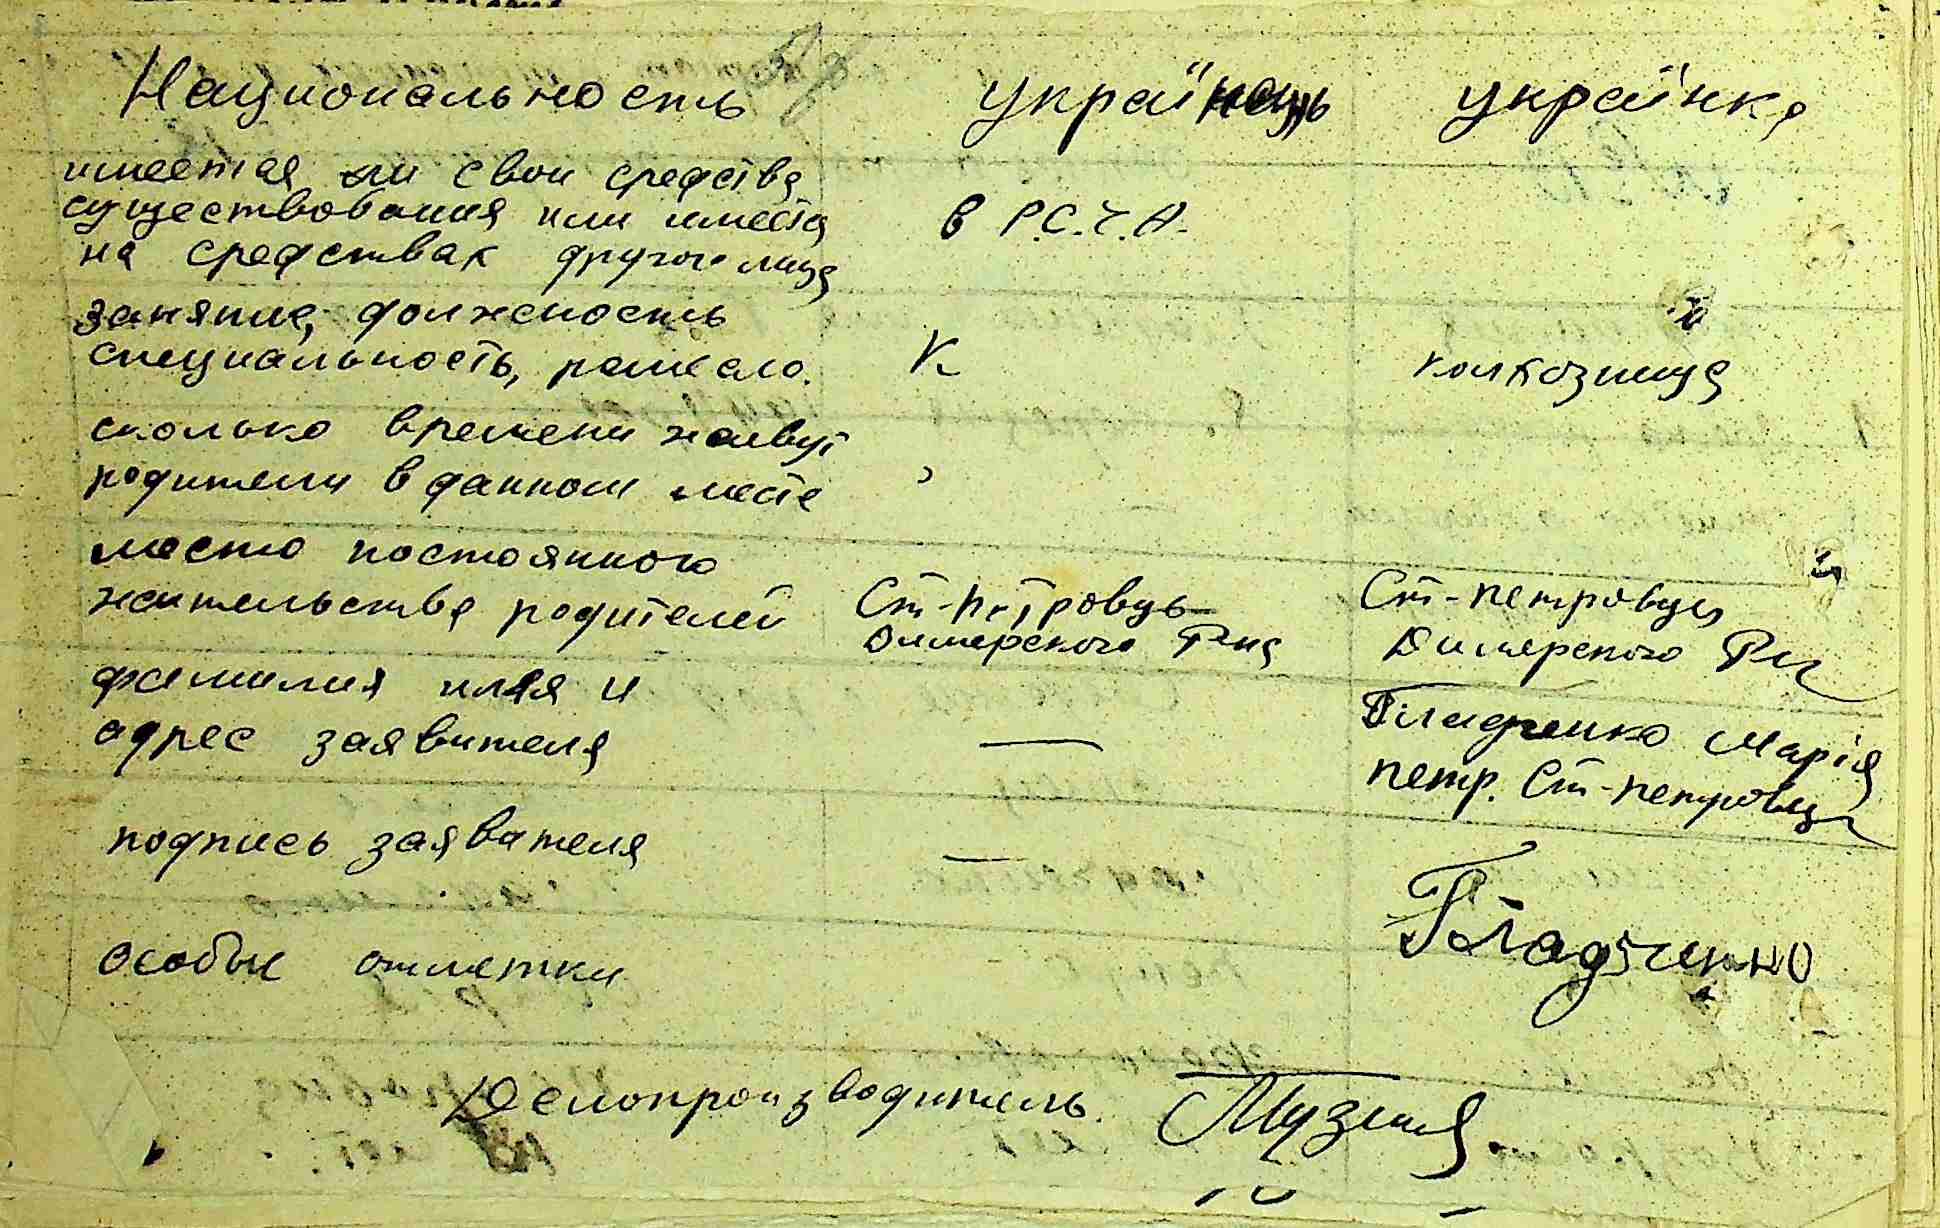 Национальность українець українка
имеется ли свои средства
существования или имеета
на средствах другого лица
в Р.С.Ч.А.
занятие, должность
специальность, ремесло.
К
колхозница
сколько времени живут
родители в данном месте
место постоянного
жительства родителей
Ст-Петровць
Димерского Р-на
Ст-Петровцы
Димерского
фамилия имя и
адрес заявителя
—
Гладченко Марія
петр. Ст-Петровцы
подпись заявателя
—
Гладченко
особые отметки
Делопроизводитель.